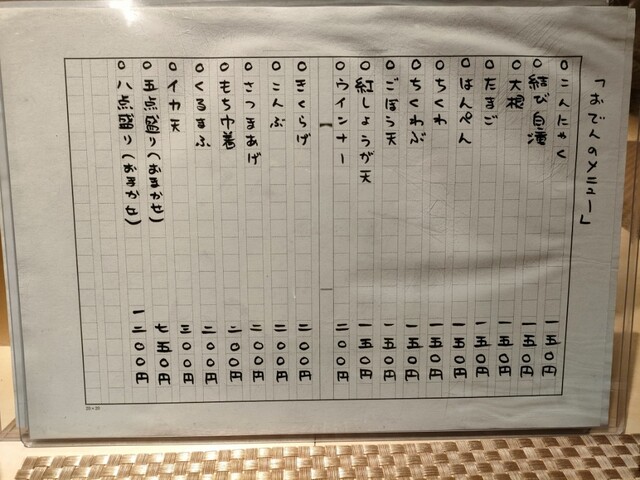 「おでんのメニュー」
○こんにゃく 一五〇円
○結び白滝 一五〇円
○大根 一五〇円
○たまご 一五〇円
○はんぺん 一五〇円
○ちくわ 一五〇円
○ちくわぶ 一五〇円
○ごぼう天 一五〇円
○紅しょうが天 一五〇円
○ウインナー 二〇〇円
○きくらげ 二〇〇円
○こんぶ 二〇〇円
○さつまあげ 二〇〇円
○もち巾着 二〇〇円
○くるまふ 二〇〇円
○イカ天 三〇〇円
○五点盛り(おまかせ) 七五〇円
○八点盛り(おまかせ) 一二〇〇円
20×20